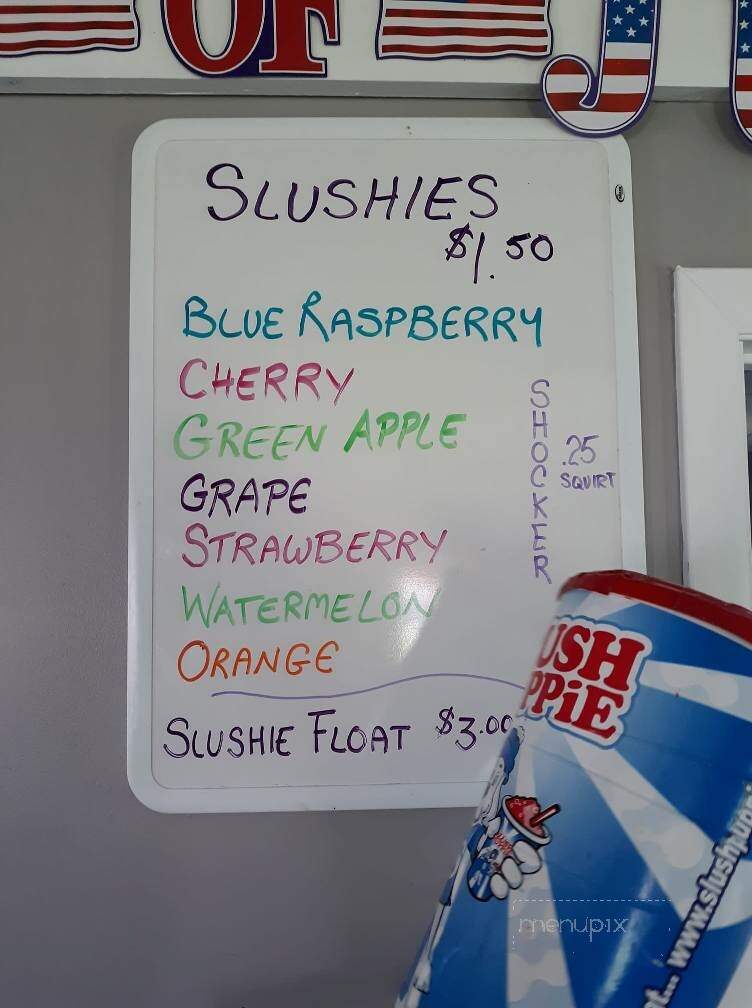 OF J
SLUSHIES
$1.50
BLUE RASPBERRY
CHERRY
GREEN APPLE
GRAPE
STRAWBERRY
WATERMELON
ORANGE
SHOCKER
.25
SQUIRT
SLUSHIE FLOAT $3.00
USH
PPiE
menupix